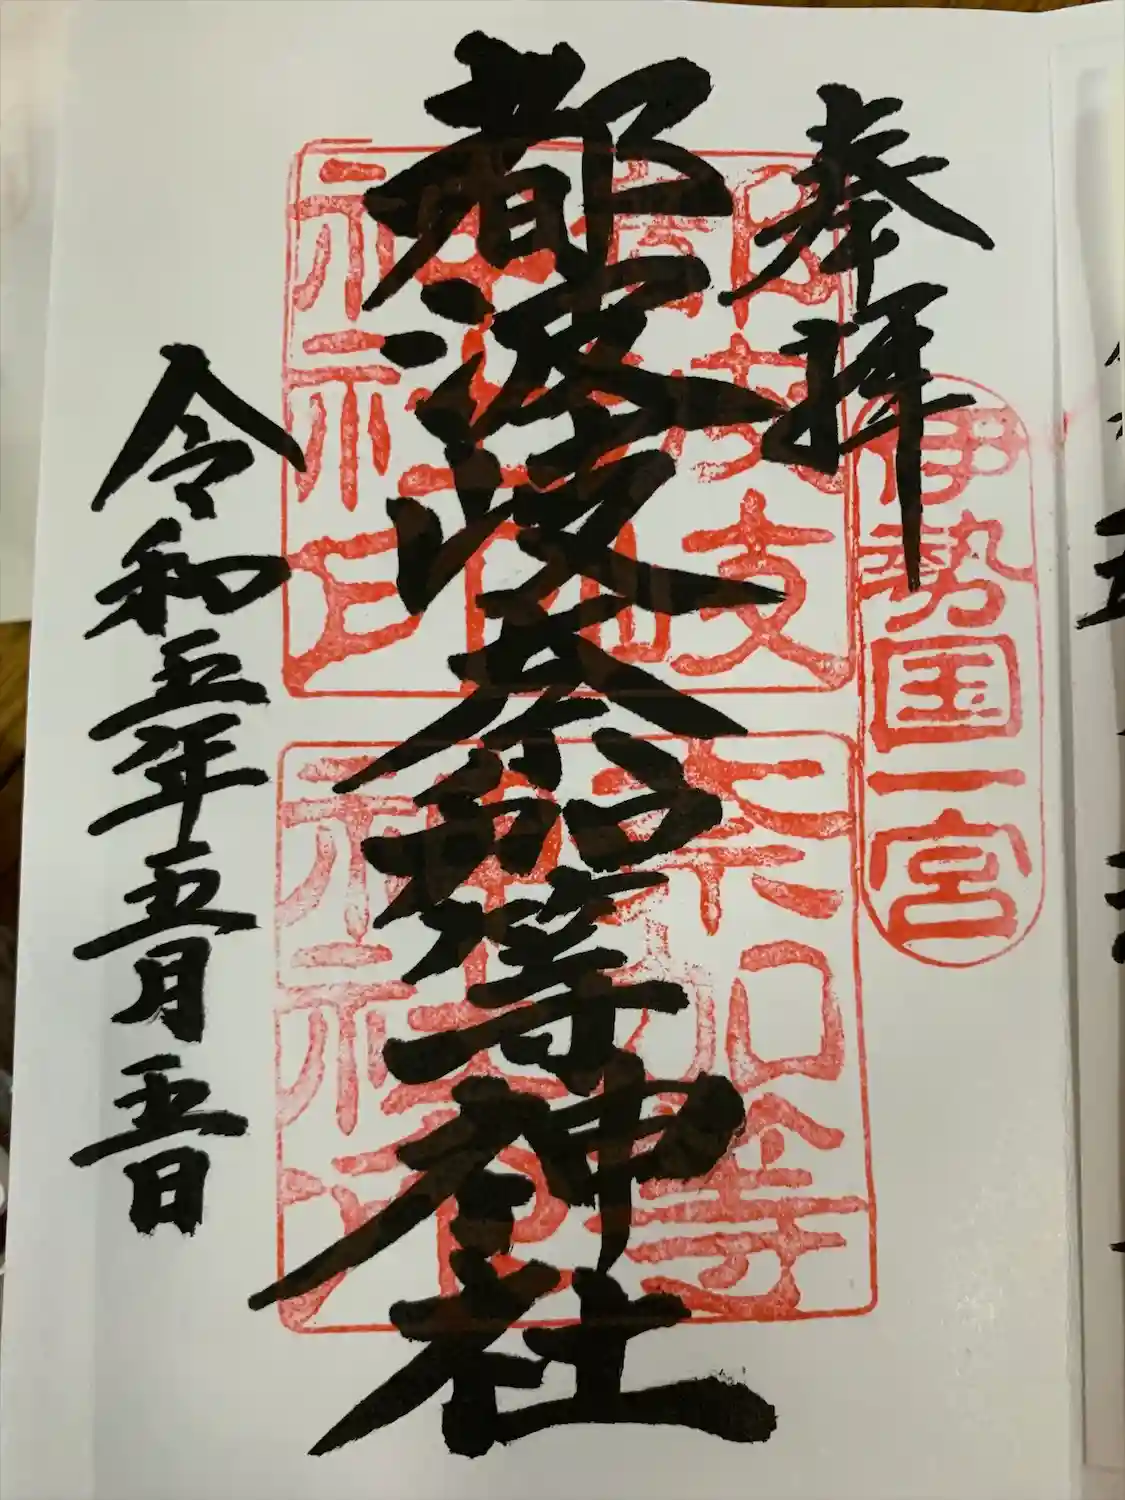 奉拝
伊勢国一宮
都波岐奈加等神社
都波岐
神社印
奈加等
神社印
令和五年五月五日